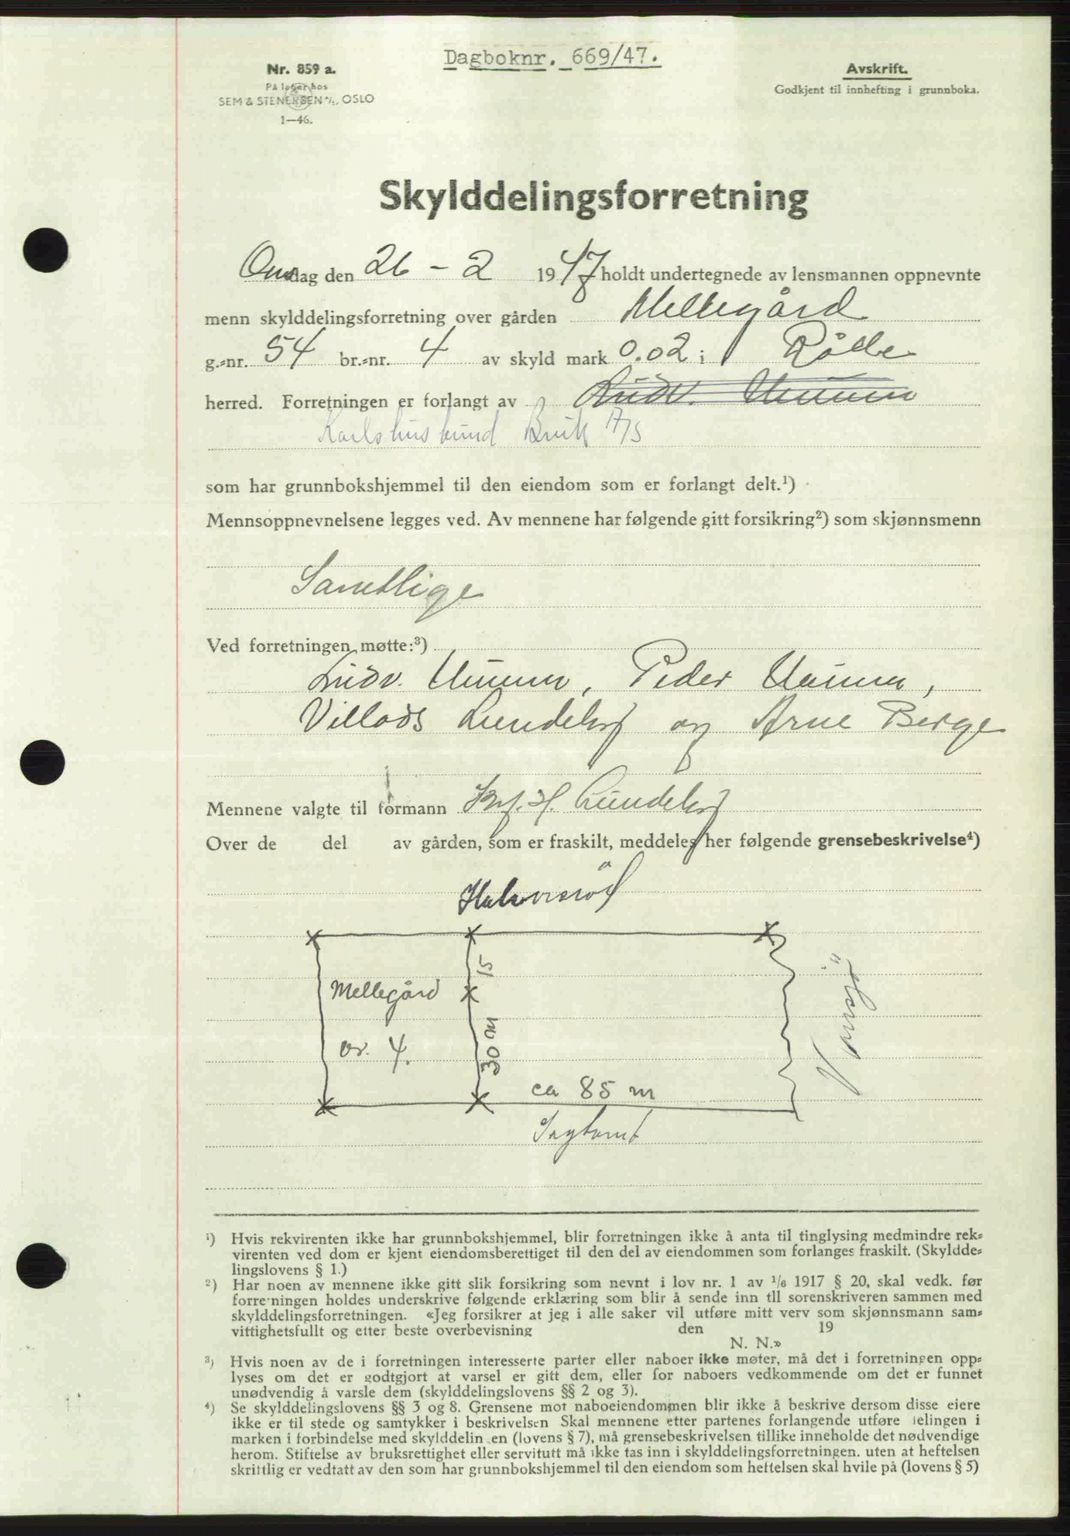 Dagboknr. 669/47.
Nr. 859 a.
På lager hos
SEM & STENERSEN A/S, OSLO
1—46.
Avskrift.
Godkjent til innhefting i grunnboka.
Skylddelingsforretning
Onsdag den 26 - 2 1947 holdt undertegnede av lensmannen oppnevnte
menn skylddelingsforretning over gården Mellegård
g.-nr. 54 br.-nr. 4 av skyld mark 0.02 i Råde
herred. Forretningen er forlangt av Ludv. Unum
Karlshus sund Bruk A/S
som har grunnbokshjemmel til den eiendom som er forlangt delt.¹)
Mennsoppnevnelsene legges ved. Av mennene har følgende gitt forsikring²) som skjønnsmenn
Samtlige
Ved forretningen møtte:³)
Ludv. Unum, Peder Unum,
Villads Lundeby og Arne Berge
Mennene valgte til formann H. Lundeby
Over de del av gården, som er fraskilt, meddeles her følgende grensebeskrivelse⁴)
Halvorsrød
15
Mellegård
30 m
br. 4.
Vansjø
ca 85 m
Sagtomt
¹) Hvis rekvirenten ikke har grunnbokshjemmel, blir forretningen ikke å anta til tinglysing medmindre rek-
virenten ved dom er kjent eiendomsberettiget til den del av eiendommen som forlanges fraskilt. (Skyldde-
lingslovens § 1.)
²) Har noen av mennene ikke gitt slik forsikring som nevnt i lov nr. 1 av ¹/6 1917 § 20, skal vedk. før
forretningen holdes underskrive følgende erklæring som blir å sende inn til sorenskriveren sammen med
skylddelingsforretningen. «Jeg forsikrer at jeg i alle saker vil utføre mitt verv som skjønnsmann sam-
vittighetsfullt og etter beste overbevisning den 19
N. N.»
³) Hvis noen av de i forretningen interesserte parter eller naboer ikke møter, må det i forretningen opp-
lyses om det er godtgjort at varsel er gitt dem, eller for naboers vedkommende om det er funnet
unødvendig å varsle dem (skylddelingslovens §§ 2 og 3).
⁴) Se skylddelingslovens §§ 3 og 8. Grensene mot naboeiendommen blir ikke å beskrive dersom disse eiere
ikke er til stede og samtykker i beskrivelsen Skal mennene etter partenes forlangende utføre delingen i
marken i forbindelse med skylddelingen (lovens § 7), må grensebeskrivelsen tillike inneholde det nødvendige
herom. Stiftelse av bruksrettighet eller servitutt må ikke tas inn i skylddelingsforretningen. uten at heftelsen
skriftlig er vedtatt av den som har grunnbokshjemmel til den eiendom som heftelsen skal hvile på (lovens § 5)